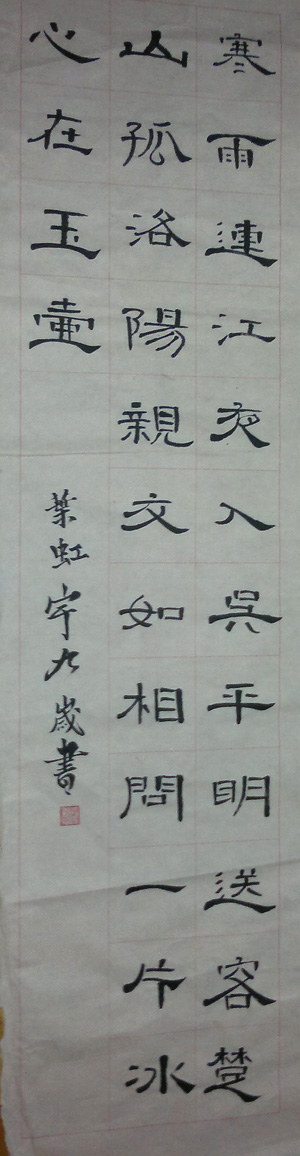 寒雨連江夜入吳平明送客楚
山孤洛陽親友如相問一片冰
心在玉壺
葉虹宇九歲書